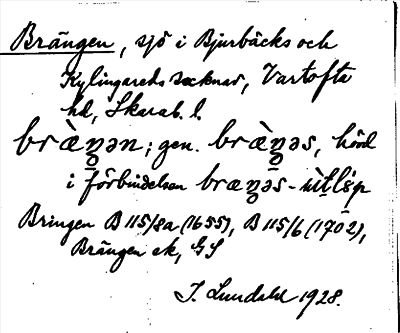 Brängen, sjö i Bjurbäcks och
Kylingareds socknar, Vartofta
hd, Skarab. l.
bræ̀ŋən; gen. bræ̀ŋəs, hörd
i förbindelsen bræŋəs-ùtlṣp
Bringen B 115/8a (1655), B 115/6 (1702),
Brängen ek, GS
J. Lundahl 1928.